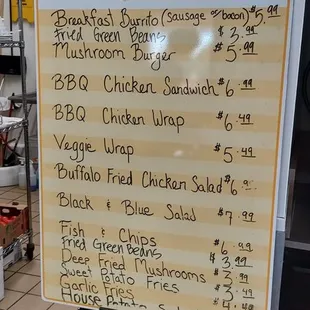 Breakfast Burrito (sausage or bacon) $5.99
Fried Green Beans $3.99
Mushroom Burger $5.99
BBQ Chicken Sandwich $6.99
BBQ Chicken Wrap $6.49
Veggie Wrap $5.49
Buffalo Fried Chicken Salad $6.
Black & Blue Salad $7.99
Fish & Chips $6.99
Fried Green Beans $3.99
Deep Fried Mushrooms $3.99
Sweet Potato Fries $3.49
Garlic Fries
House Potato